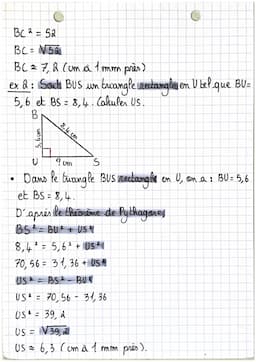 BC² = 52
BC = √52
BC ≈ 7,2 (cm à 1 mm près)
ex 2 : Soit BUS un triangle rectangle en U tel que BU=
5,6 et BS = 8,4. Calculer US.
B
5,6cm
8,4 cm
U ? cm S
• Dans le triangle BUS rectangle en U, on a : BU = 5,6
et BS = 8,4.
D'après le théorème de Pythagore,
BS² = BU² + US²
8,4² = 5,6² + US²
70,56 = 31,36 + US²
US² = BS² - BU²
US² = 70,56 - 31,36
US² = 39,2
US = √39,2
US ≈ 6,3 (cm à 1 mm près).